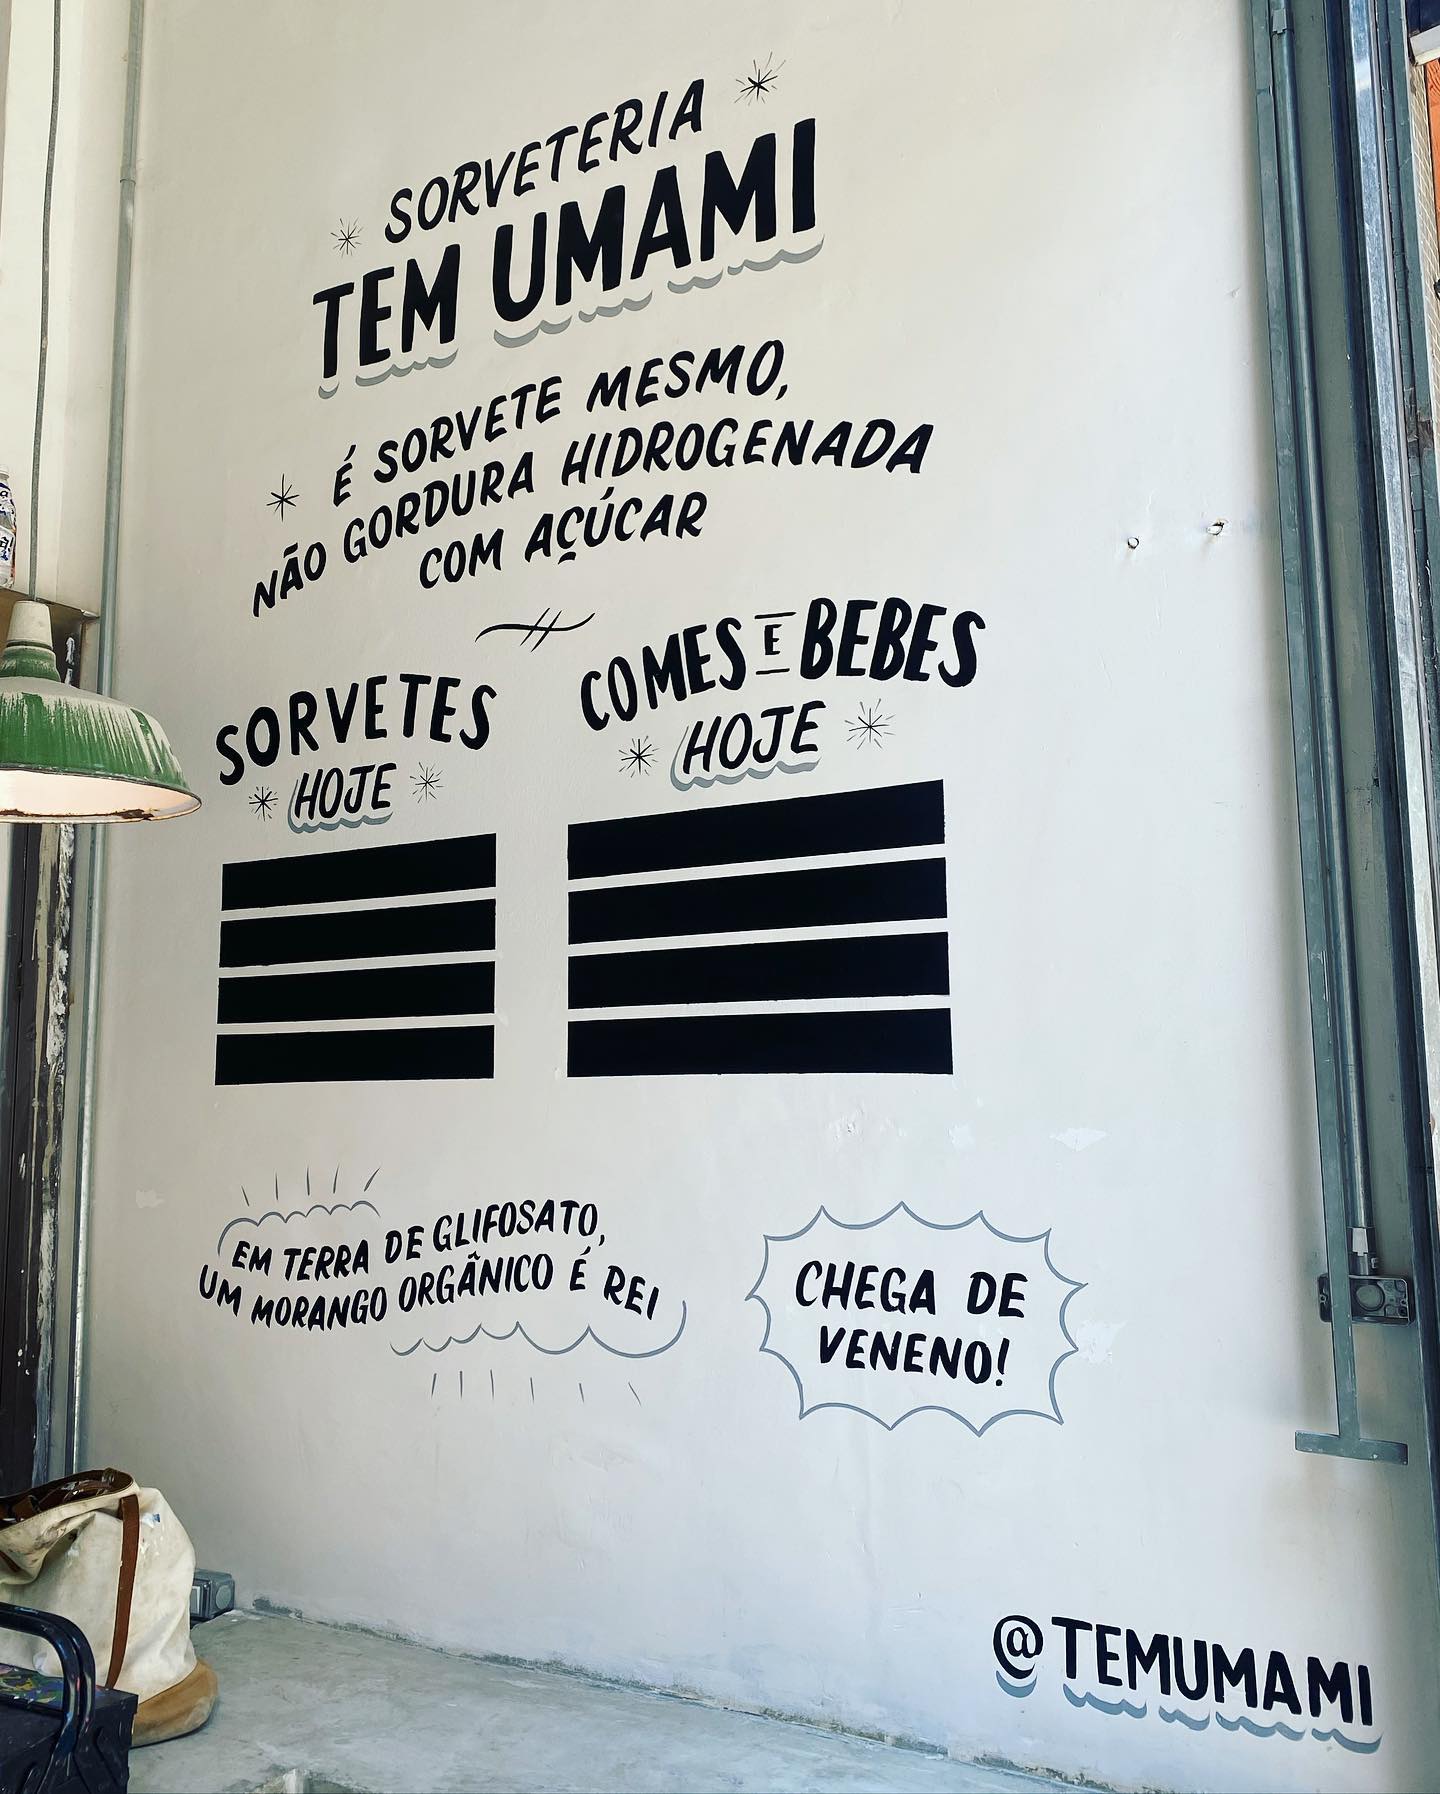 SORVETERIA
TEM UMAMI
É SORVETE MESMO,
NÃO GORDURA HIDROGENADA
COM AÇÚCAR
SORVETES
HOJE
COMES E BEBES
HOJE
EM TERRA DE GLIFOSATO,
UM MORANGO ORGÂNICO É REI
CHEGA DE
VENENO!
@TEMUMAMI